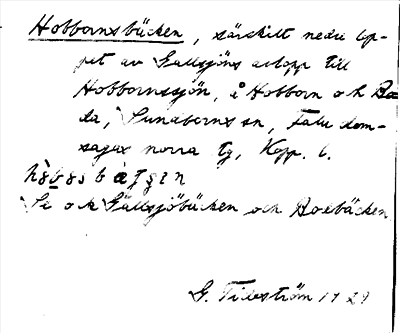 Hobbornsbäcken, särskilt nedre lop-
pet av Gällsjöns avlopp till
Hobbornssjön, å Hobborn och Bo-
da, Sunnborns sn, Falu dom-
sagas norra tg, Kopp. l.
Se ock Gällsjöbäcken och Boebäcken
G. Tideström 1929